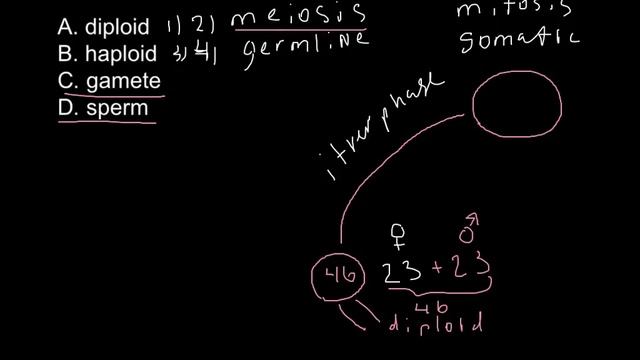 A. diploid 1) 2) meiosis
B. haploid 3) 4) germline
C. gamete
D. sperm
mitosis
somatic
itrerphase
♀ ♂
46 23 + 23
46
diploid